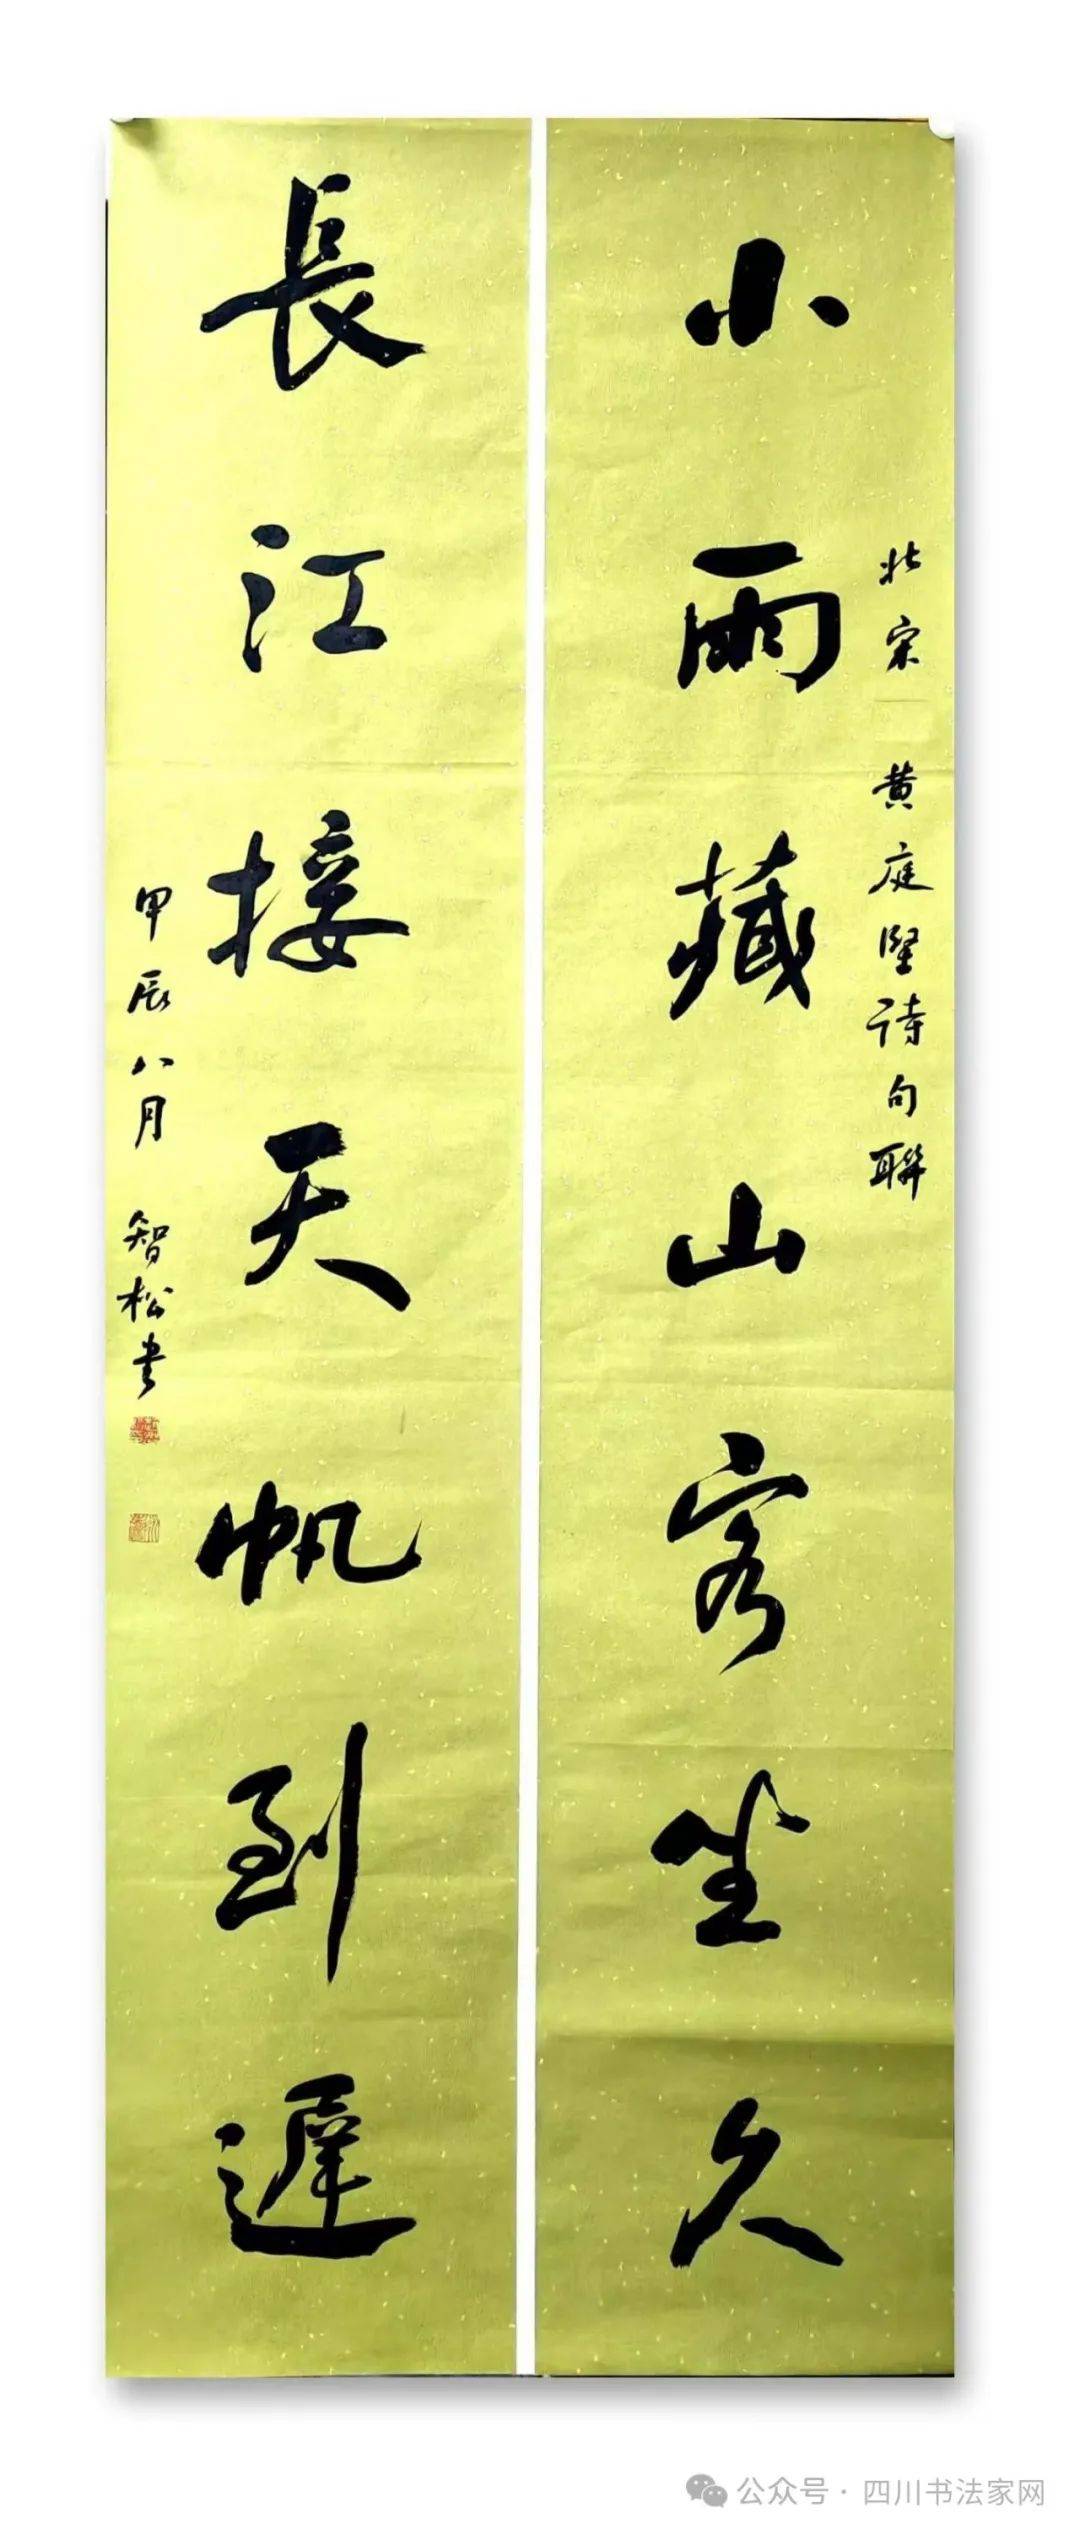 北宋 黄庭堅诗句聯
小雨藏山客坐久
長江接天帆到遲
甲辰八月 智松书
公众号·四川书法家网